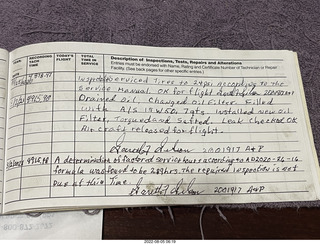 RECORDING TACH TIME
TODAY'S FLIGHT
TOTAL TIME IN SERVICE
Description of Inspections, Tests, Repairs and Alterations
Entries must be endorsed with Name, Rating and Certificate Number of Technician or Repair Facility. (See back pages for other specific entries.)
Serviced Tires to 24psi According to the
Service Manual. OK for flight
Drained Oil, Changed Oil Filter. Filled
with A/S 15W50, 7qts. Installed New Oil
Filter, Torqued and Safted. Leak Checked OK
Aircraft released for flight.
2001917 A&P
A determination of factored service hours according to AD2020-26-16
formula was found to be hrs. the required inspection is not
Due at this Time. 2001917 A&P
2022-08-05 08:19